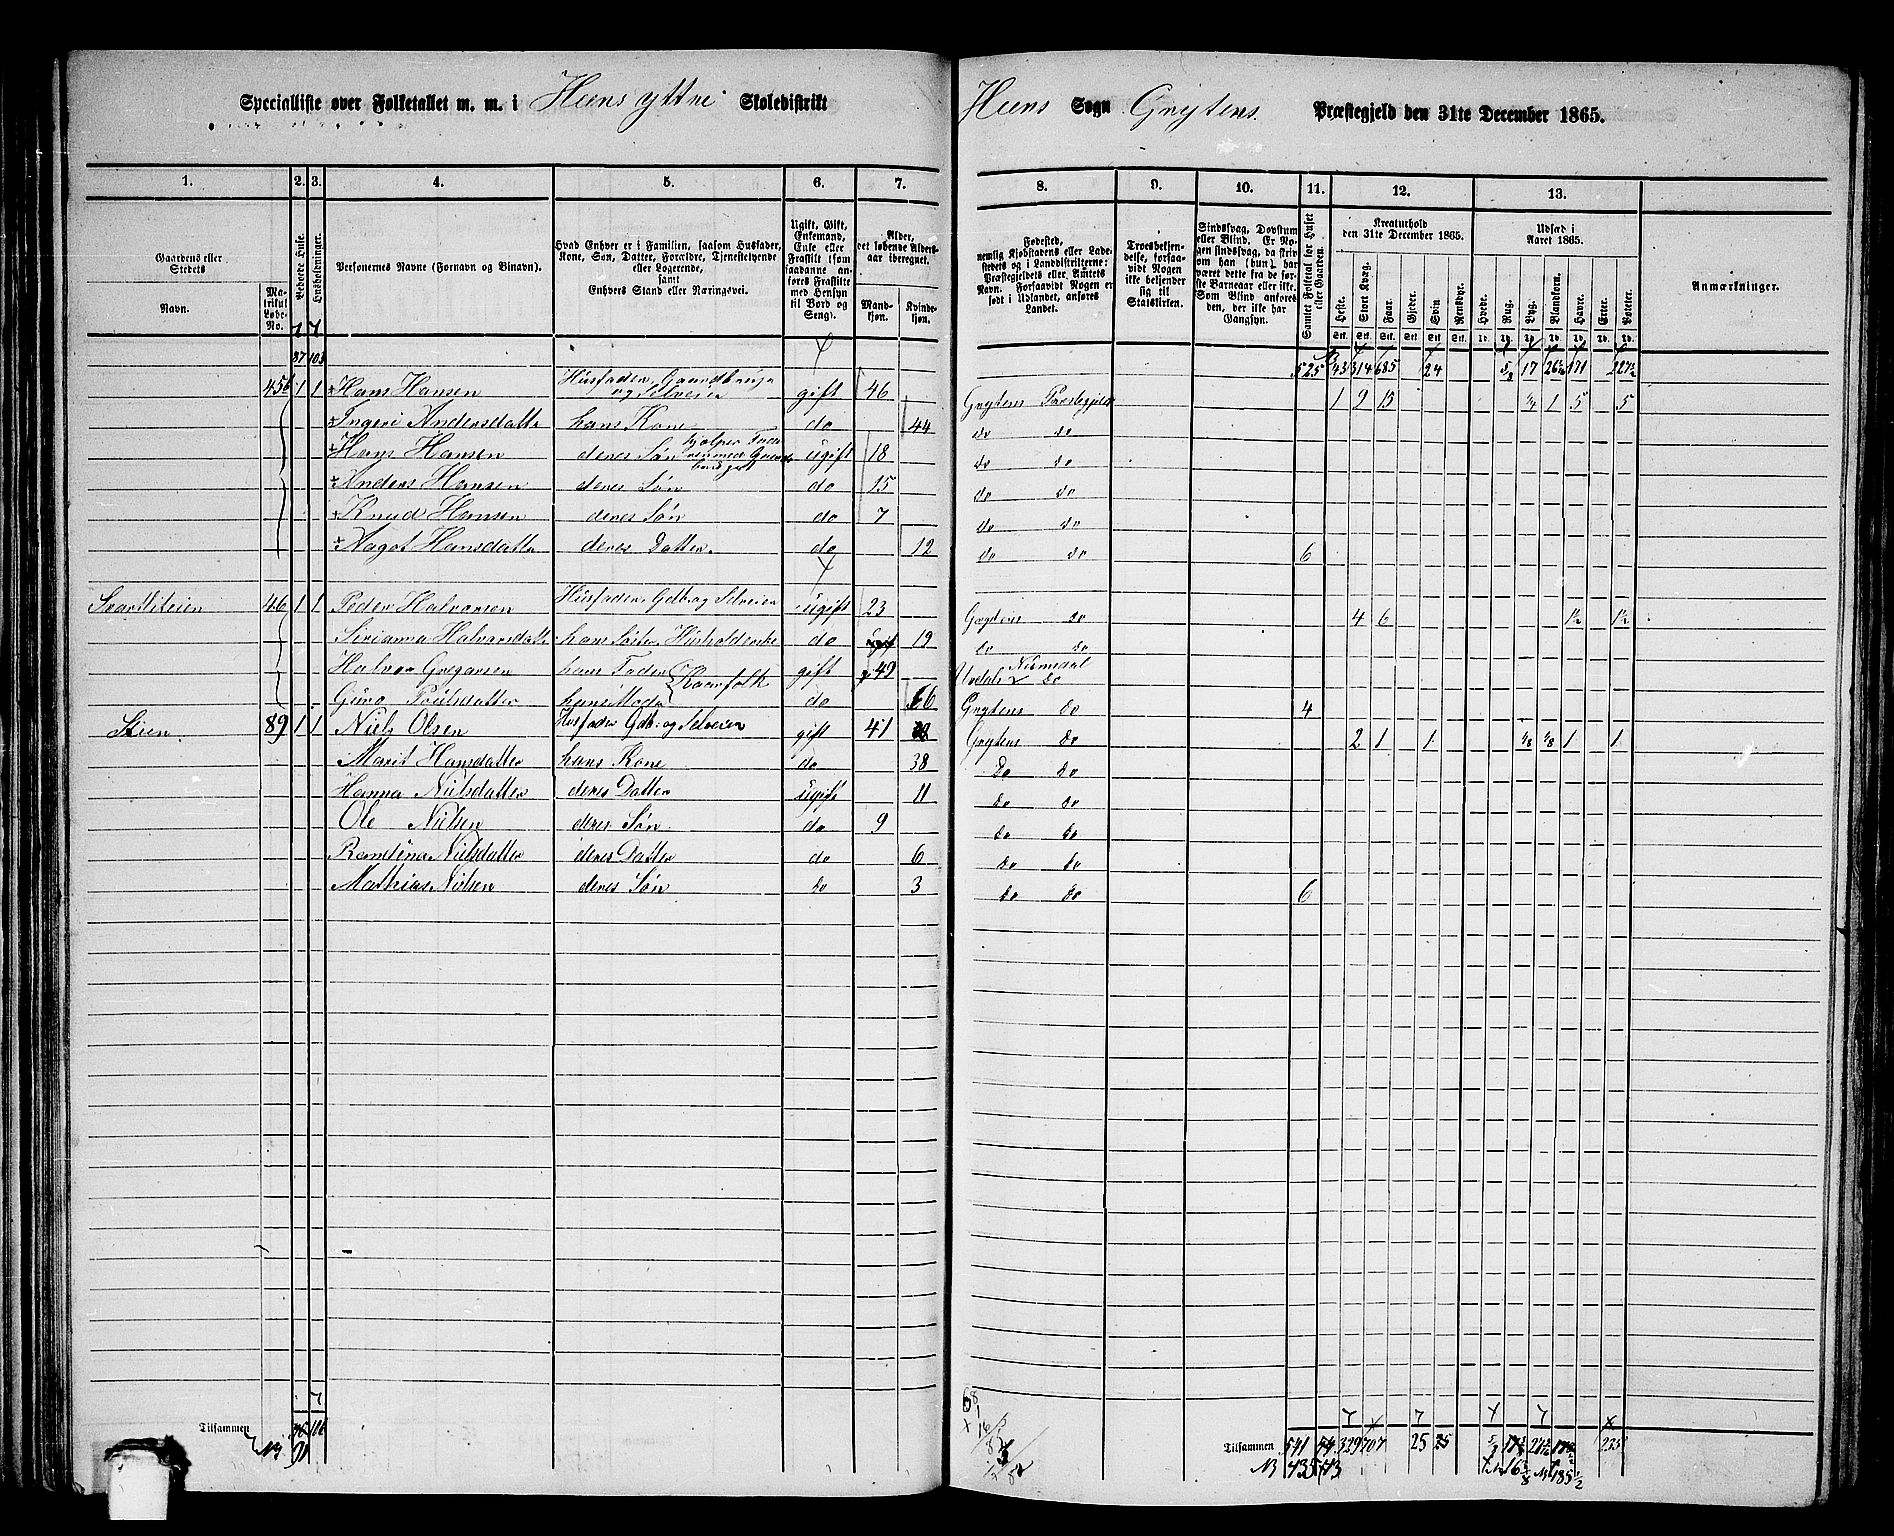 Specialliste over Folketallet m. m. i Heens yttre Skoledistrikt
Heens Sogn Grytens Præstegjeld den 31te December 1865.
1. 2. 3. 4. 5. 6. 7.
8. 9. 10. 11. 12. 13.
Gaardens eller Stedets
Navn.
Matrikul Løbe-No.
Beboede Huse.
Husholdninger.
Personernes Navne (Fornavn og Binavn).
Hvad Enhver er i Familien, saasom Husfader, Kone, Søn, Datter, Forældre, Tjenestetyende eller Logerende, samt Enhvers Stand eller Næringsvei.
Ugift, Gift, Enkemand, Enke eller Fraskilt (som saadanne anføres Fraskilte med Hensyn til Bord og Seng).
Alder, det løbende Alders-aar iberegnet.
Mand-kjøn.
Kvinde-kjøn.
Fødested, nemlig Kjøbstadens eller Ladestedets og i Landdistrikterne: Præstegjeldets eller Amtets Navn. Forsaavidt Nogen er født i Udlandet, anføres Landet.
Troesbekjendelse, forsaavidt Nogen ikke bekjender sig til Statskirken.
Sindssvag, Døvstum eller Blind. Er Nogen sindssvag, da skrives om han (hun) har været dette fra de første Barneaar eller ikke. Som Blind anføres den, der ikke har Gangsyn.
Samlet Folketal for Huset eller Gaarden.
Kreaturhold den 31te December 1865.
Heste. Stort Kvæg. Faar. Gjeder. Svin. Rensdyr.
Udsæd i Aaret 1865.
Hvede. Rug. Byg. Blandkorn. Havre. Erter. Poteter.
Anmærkninger.
87 103 525 43 314 685 24 17 171
45b 1 1 Hans Hansen Husfader Gaardbruger og Selveier gift 46 Grytens Præstegjeld 1 9 15 1 5 5
Ingeri Andersdatter hans Kone do 44 do do
Hans Hansen deres Søn hjelper Faderen med ugift 18 do do
Anders Hansen deres Søn do 15 do do
Knud Hansen deres Søn do 7 do do
Aagot Hansdatter deres Datter do 12 do do 6
46 1 1 Peder Halvorsen Husfader Gdb. og Selveier ugift 23 Grytens do 4 6 1½ 1½
Halvorsdatter hans Søster Husholderske do 19 do do
Halvor Gregersen hans Fader Kaarfolk gift 49 do
Guro Poulsdatter hans Moder do 66 Grytens do 4
Stien 89 1 1 Niels Olsen Husfader Gdb. og Selveier gift 41 Grytens do 2 1 1 1/8 1/8 1 1
Marit Hansdatter hans Kone do 38 Do Do
Hanna Nielsdatter deres Datter ugift 11 do do
Ole Nielsen deres Søn do 9 do do
Nielsdatter deres Datter do 6 do do
Mathias Nielsen deres Søn do 3 do do 6
Tilsammen 106
Tilsammen 541 329 707 25